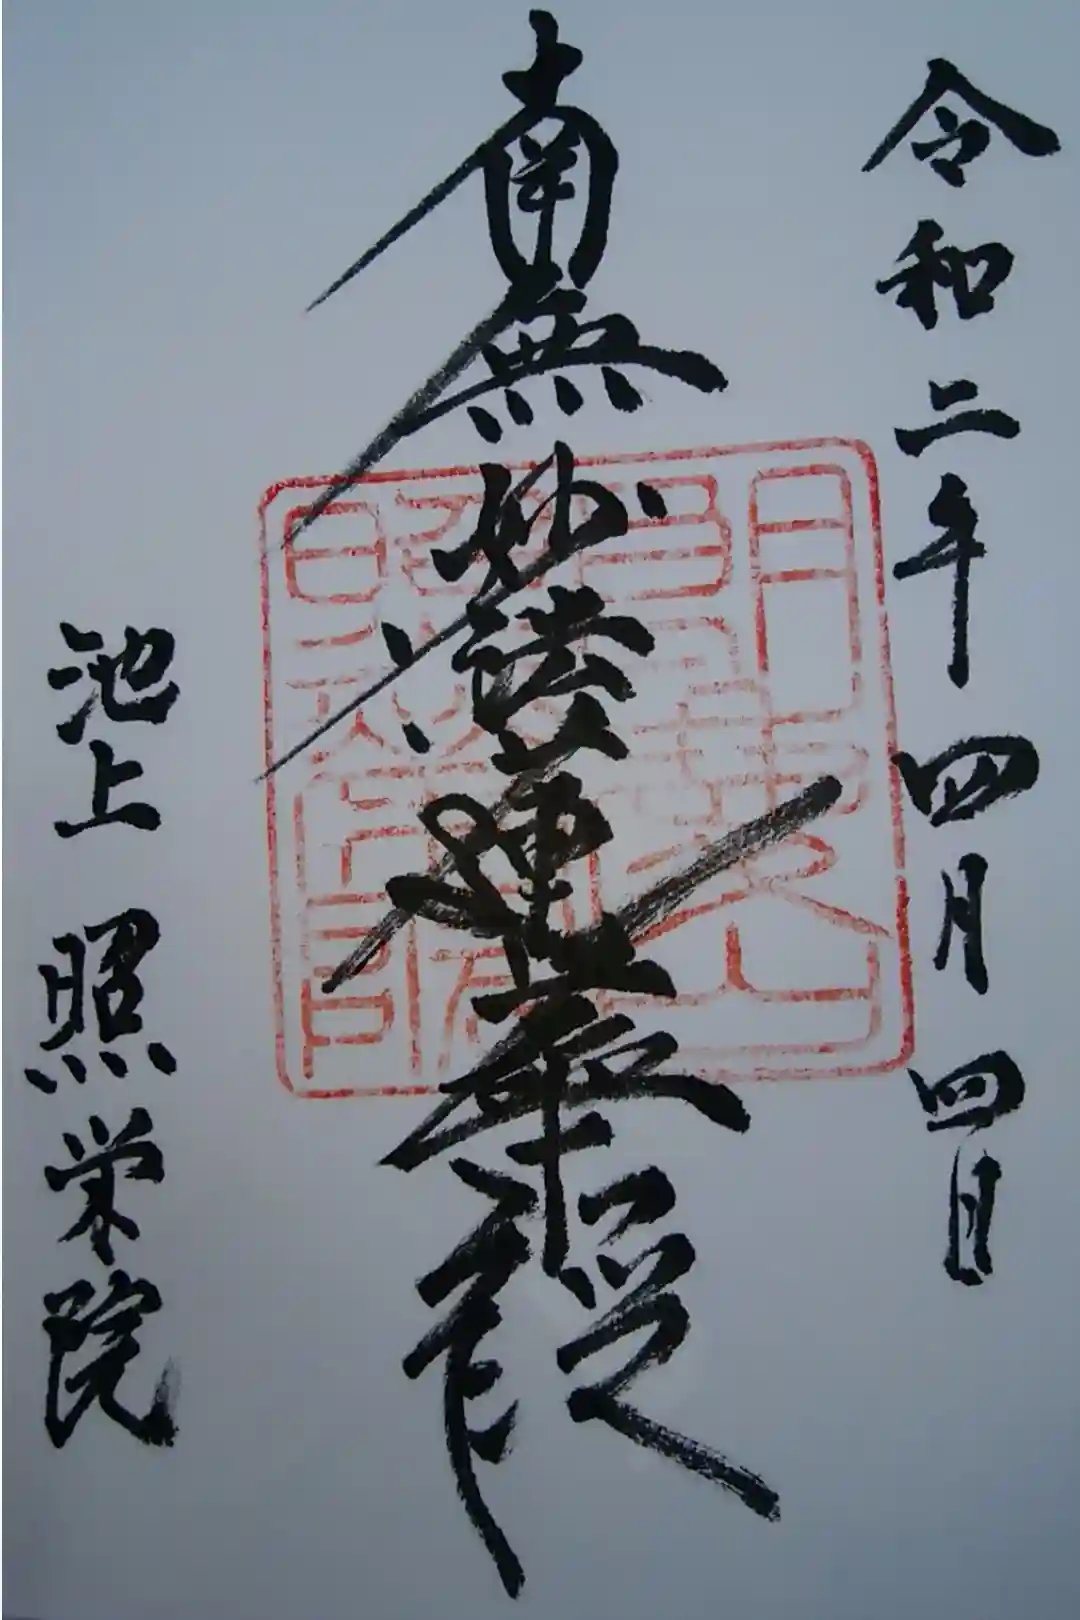 令和二年四月四日
南無妙法蓮華経
池上照栄院